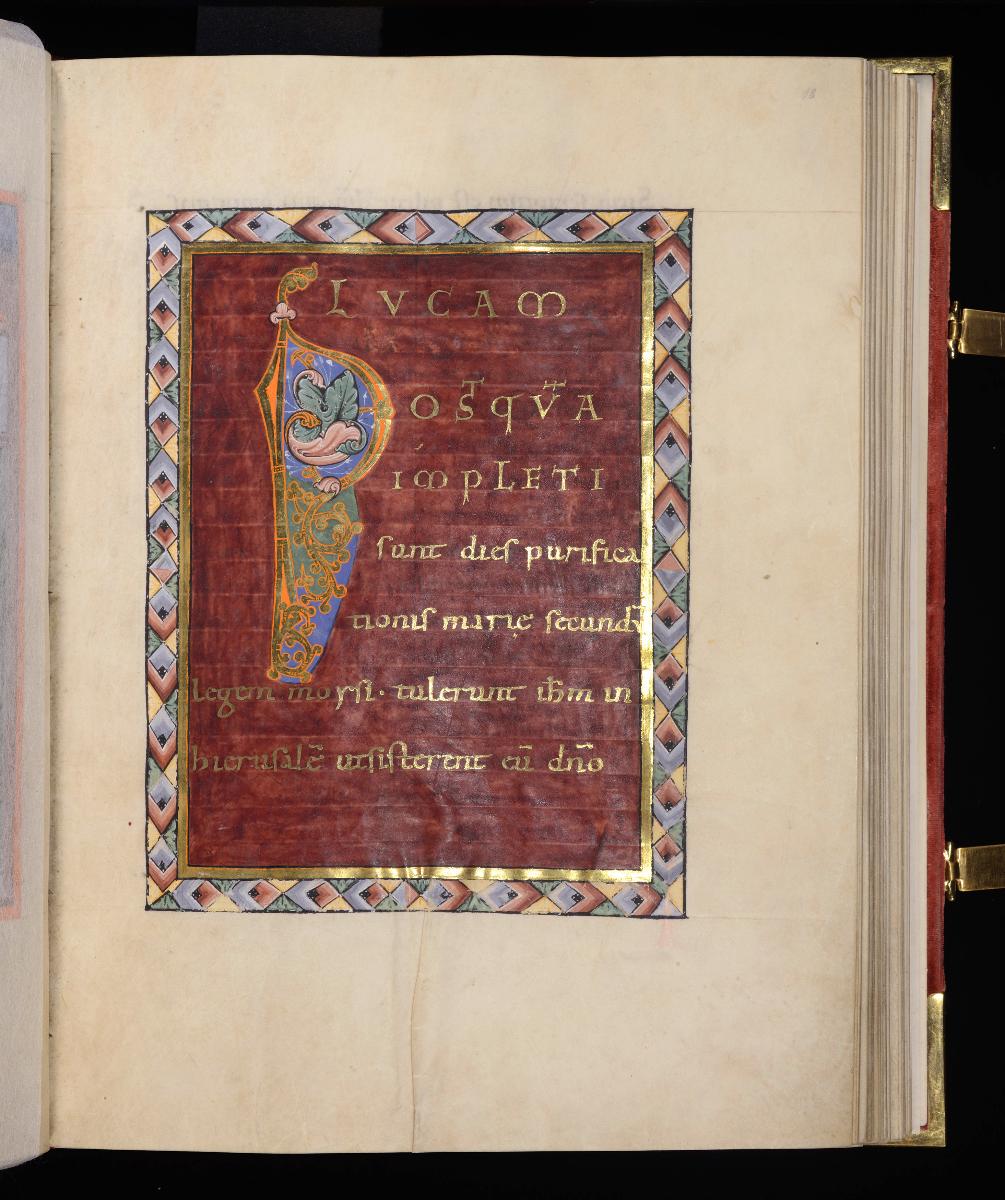 18
LUCAM
POSTQVĀ
IMPLETI
sunt dies purifica
tionis marię secundū
legem moysi · tulerunt ihm̄ in
hierusalē utsisterent eū dnō